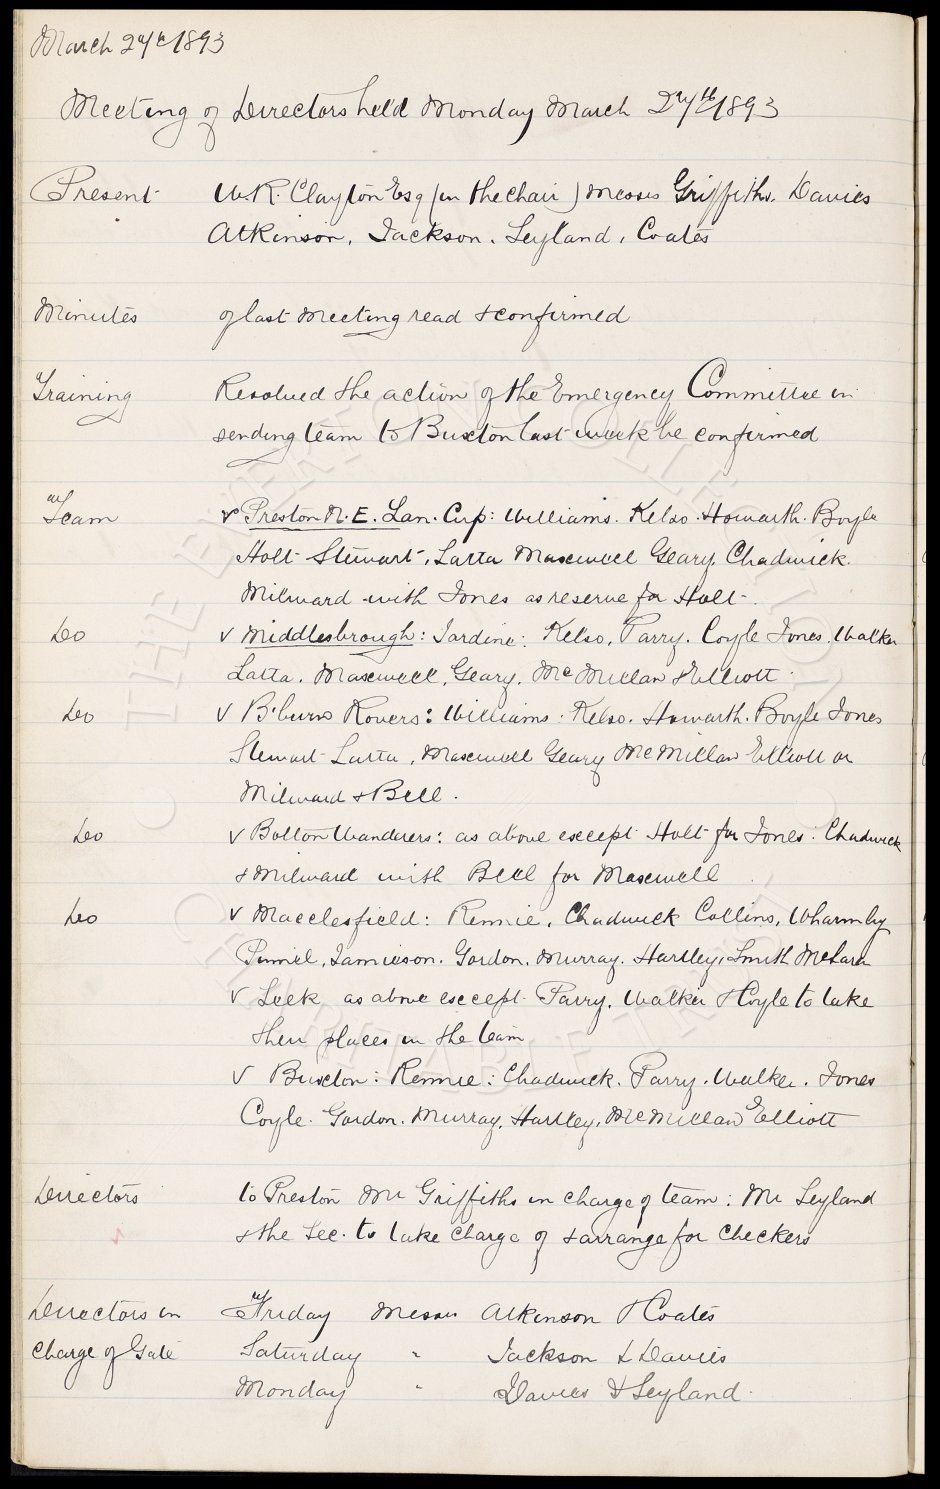 March 27th 1893
Meeting of Directors held Monday March 27th 1893
Present W.R. Clayton Esq (in the chair) Messrs Griffiths. Davies
Atkinson. Jackson. Leyland. Coates
Minutes of last meeting read & confirmed
Training Resolved the action of the Emergency Committee in
sending team to Buxton last week be confirmed
Team v Preston N.E. Lan. Cup: Williams. Kelso. Howarth. Boyle
Holt Stewart, Latta Maxwell Geary, Chadwick.
Milward with Jones as reserve for Holt.
Do v Middlesbrough: Jardine: Kelso, Parry. Coyle Jones. Walker
Latta. Maxwell, Geary, McMillan & Elliott.
Do v B'burn Rovers: Williams. Kelso. Howarth. Boyle Jones
Stewart Latta, Maxwell Geary McMillan Elliott or
Milward & Bell.
Do v Bolton Wanderers: as above except Holt for Jones: Chadwick
& Milward with Bell for Maxwell
Do v Macclesfield: Rennie, Chadwick Collins, Wharmby
Jamieson. Gordon. Murray. Hartley, Smith
v Leek as above except Parry, Walker & Coyle to take
their places in the team
v Buxton: Rennie: Chadwick. Parry. Walker. Jones
Coyle. Gordon. Murray. Hartley, McMillan Elliott
Directors to Preston Mr Griffiths in charge of team: Mr Leyland
& the Sec. to take charge of & arrange for checkers
Directors in Friday Messrs Atkinson & Coates
charge of Gate Saturday " Jackson & Davies
Monday " Davies & Leyland.
THE EVERTON COLLECTION
CHARITABLE TRUST